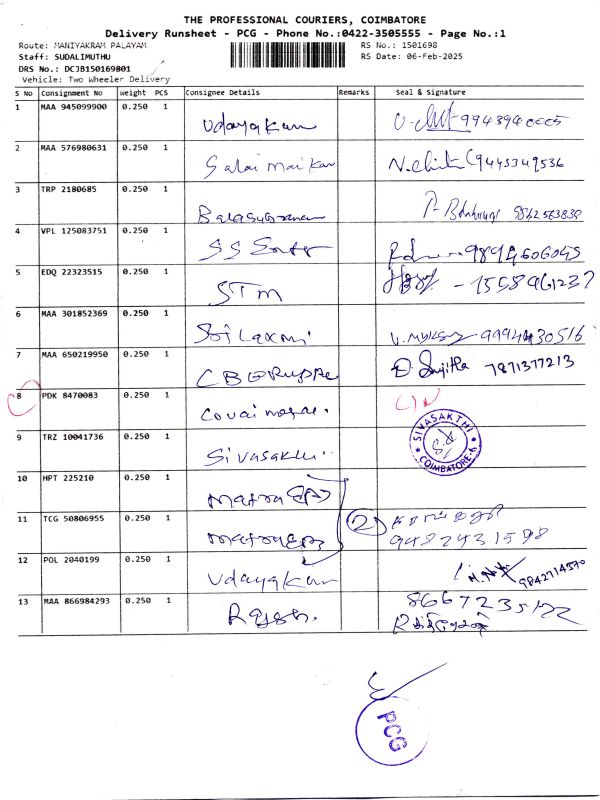 THE PROFESSIONAL COURIERS, COIMBATORE
Delivery Runsheet - PCG - Phone No.:0422-3505555 - Page No.:1
Route: MANIYAKRAM PALAYAM RS No.: 1501698
Staff: SUDALIMUTHU RS Date: 06-Feb-2025
DRS No.: DCJB150169801
Vehicle: Two Wheeler Delivery
S No Consignment No Weight PCS Consignee Details Remarks Seal & Signature
1 MAA 945099900 0.250 1 Udayakum
2 MAA 576980631 0.250 1 9443349536
3 TRP 2180685 0.250 1
4 VPL 125083751 0.250 1 SS
5 EDQ 22323515 0.250 1 STM
6 MAA 301852369 0.250 1 Sri Laxmi
7 MAA 650219950 0.250 1 D. Sujitha 7871377213
8 PDK 8470083 0.250 1 Covai
SIVASAKTHI
COIMBATORE-6
9 TRZ 10041736 0.250 1 Sivasakthi
10 HPT 225210 0.250 1
11 TCG 50806955 0.250 1 2
9482431598
12 POL 2040199 0.250 1 Udayakum 9842714570
13 MAA 866984293 0.250 1
PCG